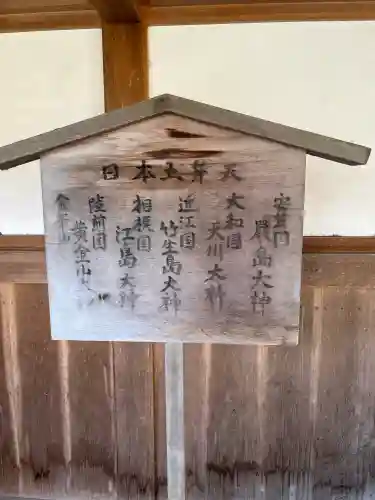 日本五弁天
安芸国
厳島大神
大和国
天川大神
近江国
竹生島大神
相模国
江島大神
陸前国
黄金山
金華山